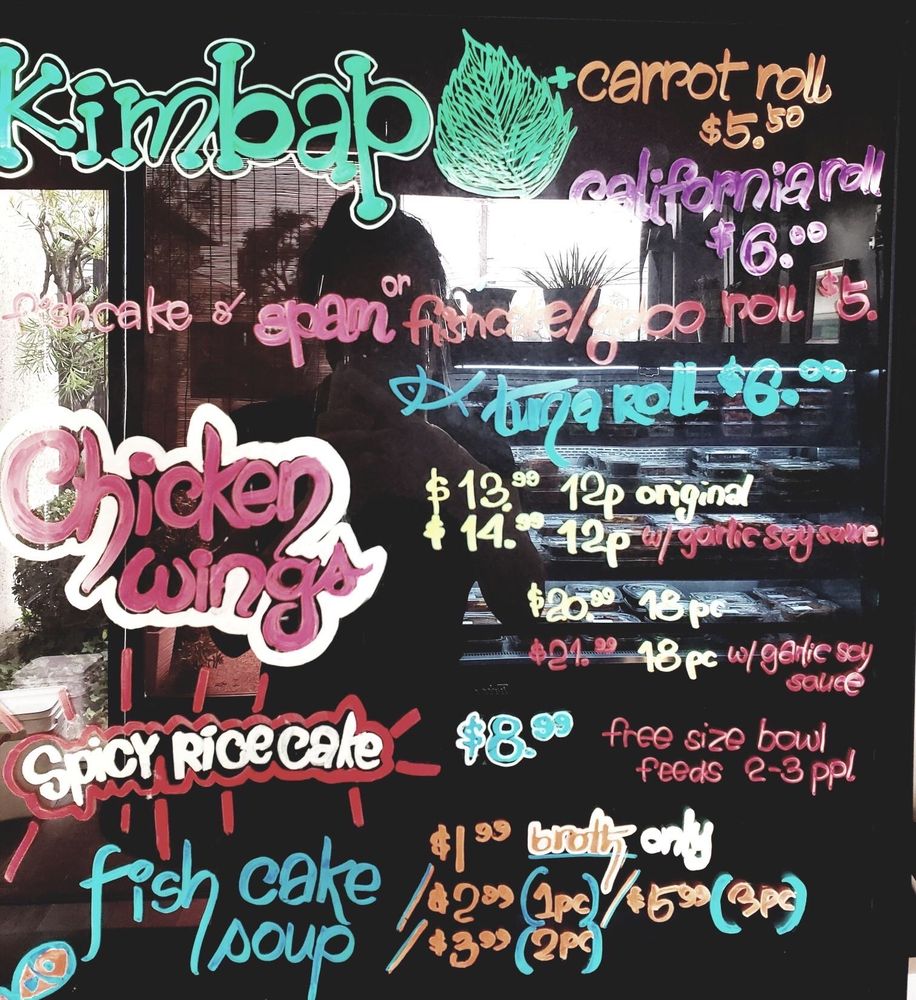 Kimbap
+ carrot roll
$5.50
california roll
$6.00
fishcake & spam or fishcake/goboo roll $5.
tuna Roll $6.00
Chicken
wings
$13.99 12p original
$14.99 12p w/ garlic soy sauce.
$20.99 18 pc
$21.99 18 pc w/ garlic soy
sauce
Spicy Rice cake
$8.99 free size bowl
feeds 2-3 ppl
fish cake
soup
$1.99 broth only
/$2.99 (1pc) /$5.99 (3pc)
/$3.99 (2pc)